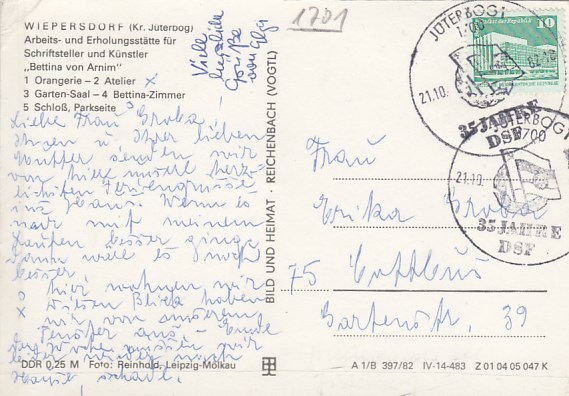 WIEPERSDORF (Kr. Jüterbog)
Arbeits- und Erholungsstätte für
Schriftsteller und Künstler
„Bettina von Arnim"
1 Orangerie – 2 Atelier x
3 Garten-Saal – 4 Bettina-Zimmer
5 Schloß, Parkseite
1701
Viele
herzliche
Grüße
von
Liebe Frau
Ihnen u Ihrer lieben
Mutter senden wir
von hier
lichsten
ins Haus. Wenn es
nur mit meinem
Laufen besser ginge
dann wäre es noch
besser!
x hier wohnen wir
x diesen Blick haben
wir von unserem
Fenster aus – Ende
müssen wir
wieder nach
Hause, schade.
DDR 0,25 M Foto: Reinhold, Leipzig-Mölkau
BILD UND HEIMAT · REICHENBACH (VOGTL)
JÜTERBOG 1
1700
21.10.
35 JAHRE
DSF
10
JÜTERBOG 1
1700
21.10.
35 JAHRE
DSF
Frau
Erika
75 Cottbus
Gartenstr. 39
A 1/B 397/82 IV-14-483 Z 01 04 05 047 K